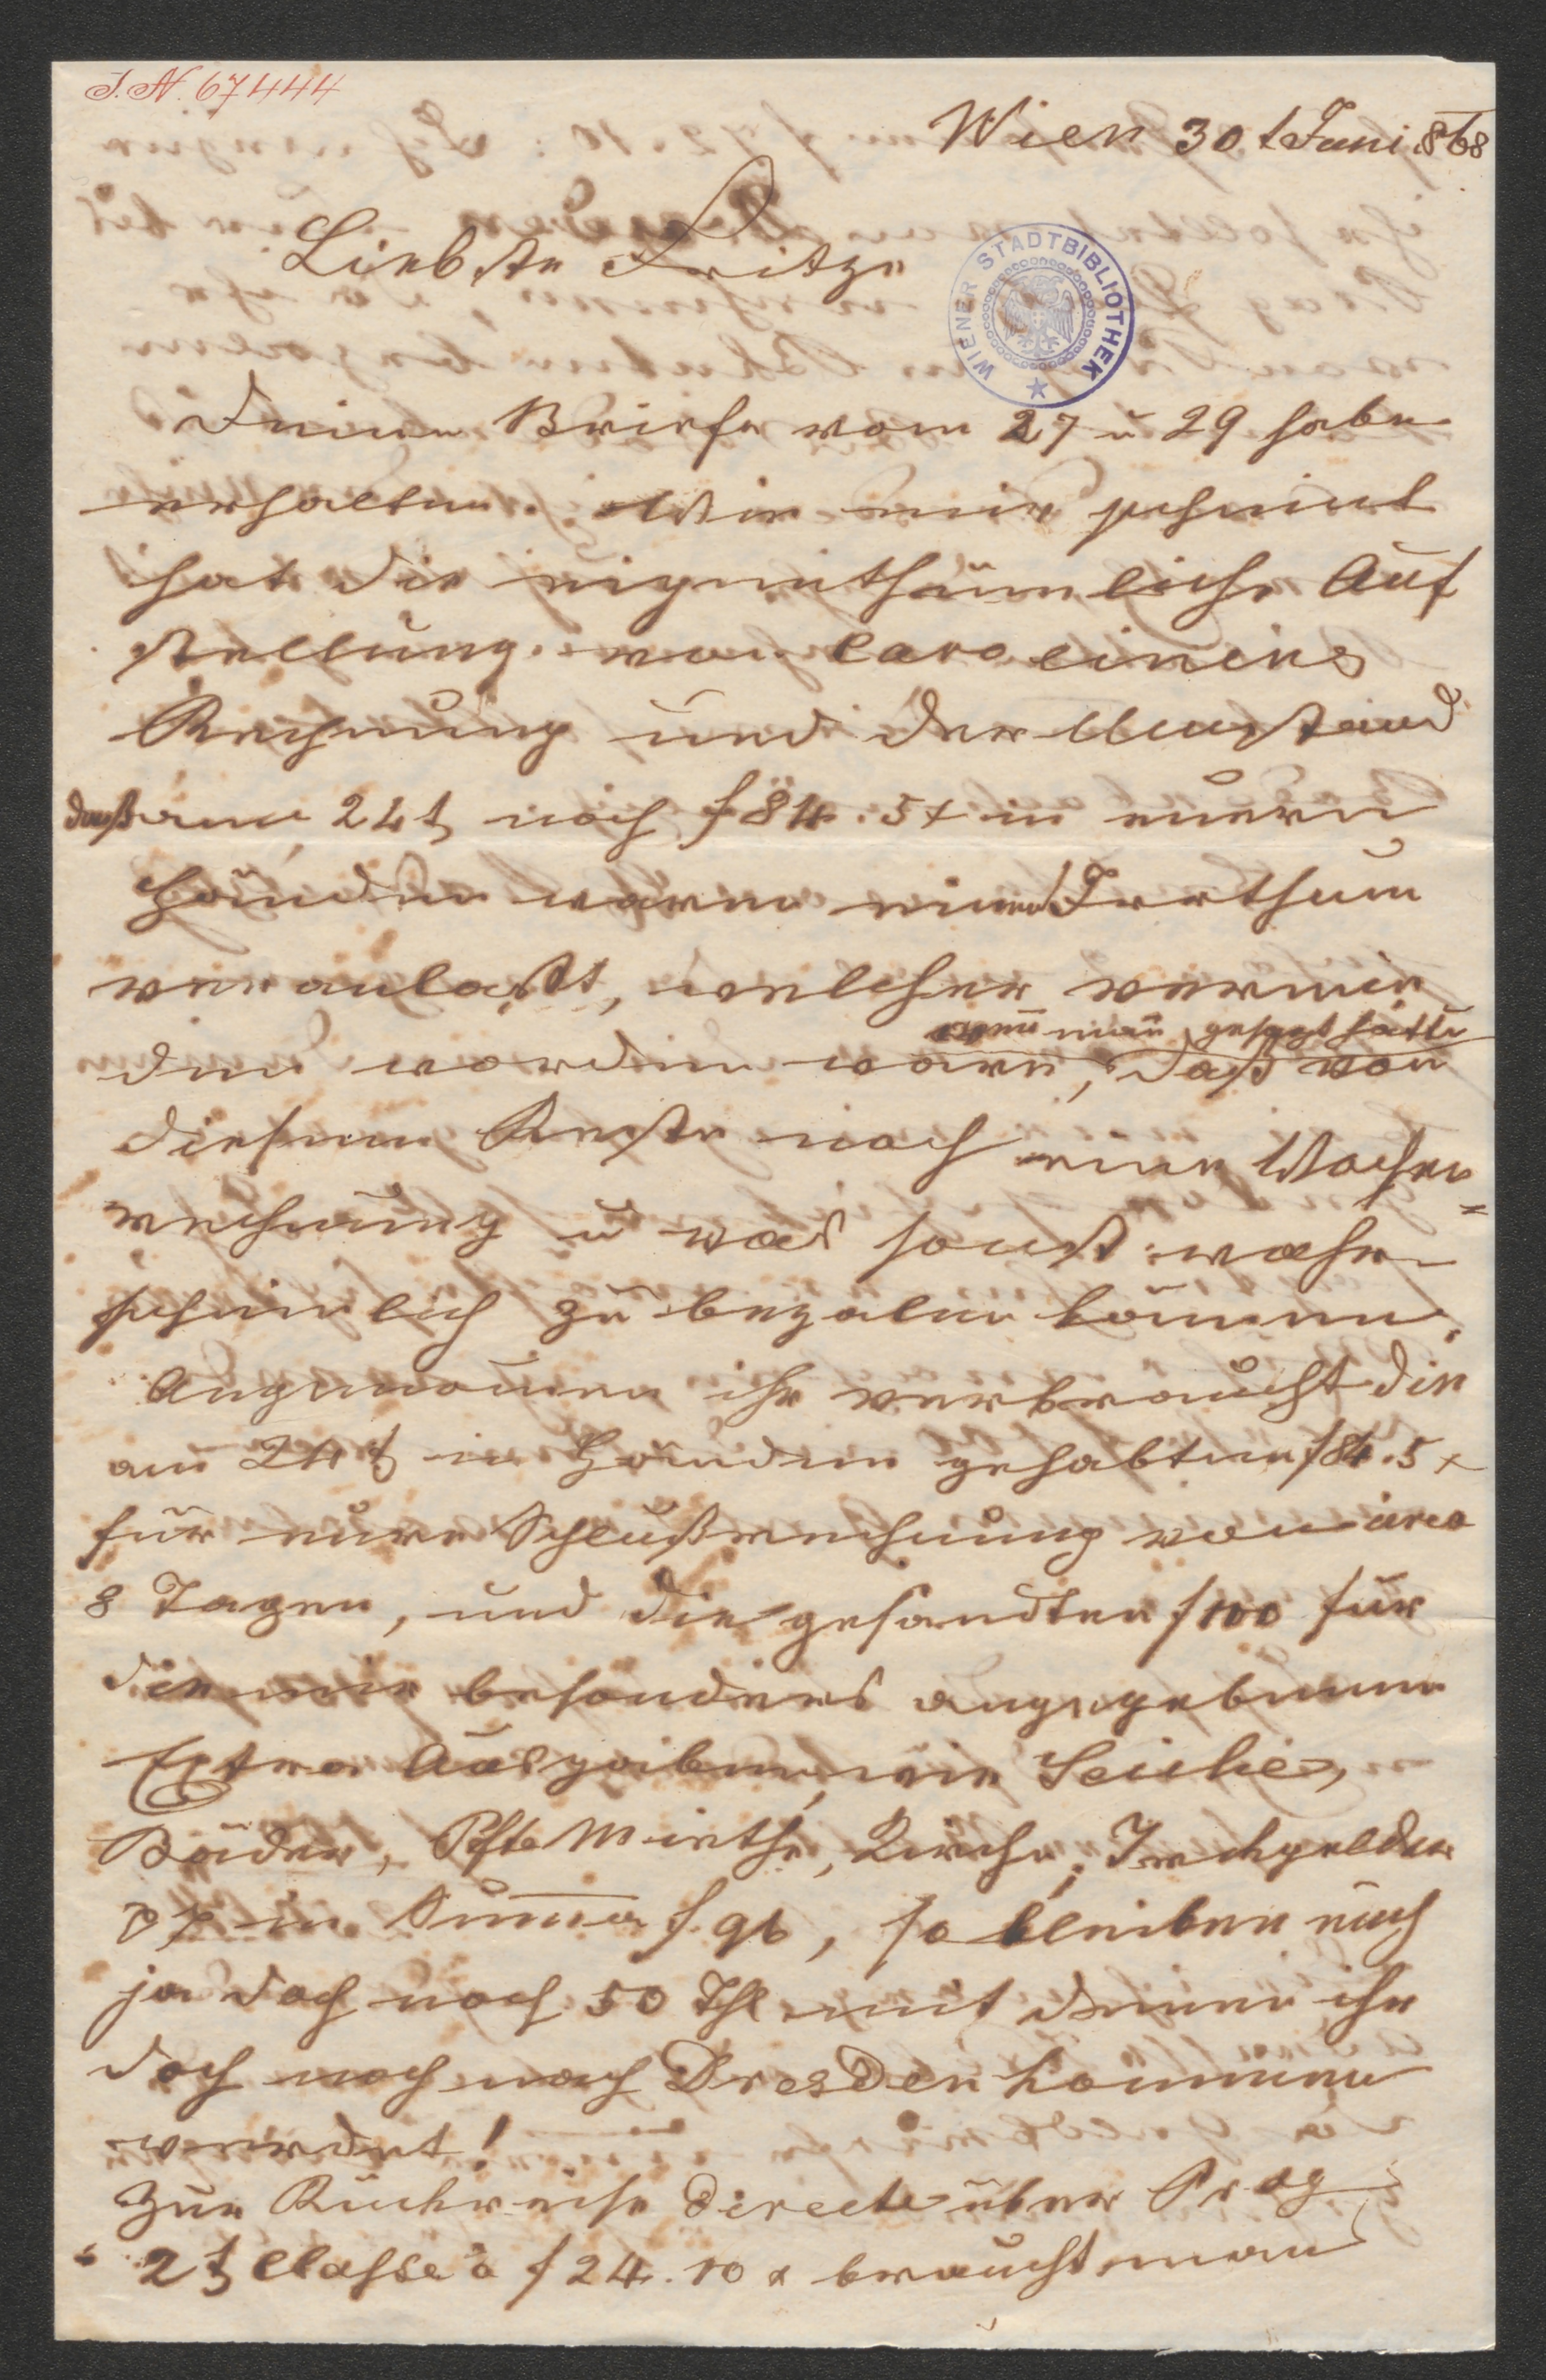 J.N. 67444
Wien 30 t Juni 868
Liebste Fritze
WIENER STADTBIBLIOTHEK
Deine Briefe vom 27 u 29 habe
erhalten. Wie mir scheint
hat die eigenthümliche Auf
stellung von Carolinens
Rechnung und der Umstand
daß am 24t noch f 84.5x in euern
Händen waren einen Irrthum
veranlaßt, welcher vermie
den worden wäre, wenn man gesagt hätte daß von
diesem Reste noch eine Wochen=
rechnung u was sonst wahr
scheinlich zu bezalen komme.
Angenommen ihr verbraucht die
am 24t in Händen gehabten f 84.5x
für eure Schlußrechnung von circa
8 Tagen, und die gesandten f 100 für
die mir besonders angegebenen
Extra Ausgaben, wie
Bäder, Miethe, Trinkgelder
pp in Summa f. 96, so bleiben euch
ja doch noch 50 Thl mit denen ihr
doch noch nach Dresden kommen
werdet!
Zur Rückreise directe über Prag
2t Classe à f 24.10x braucht man